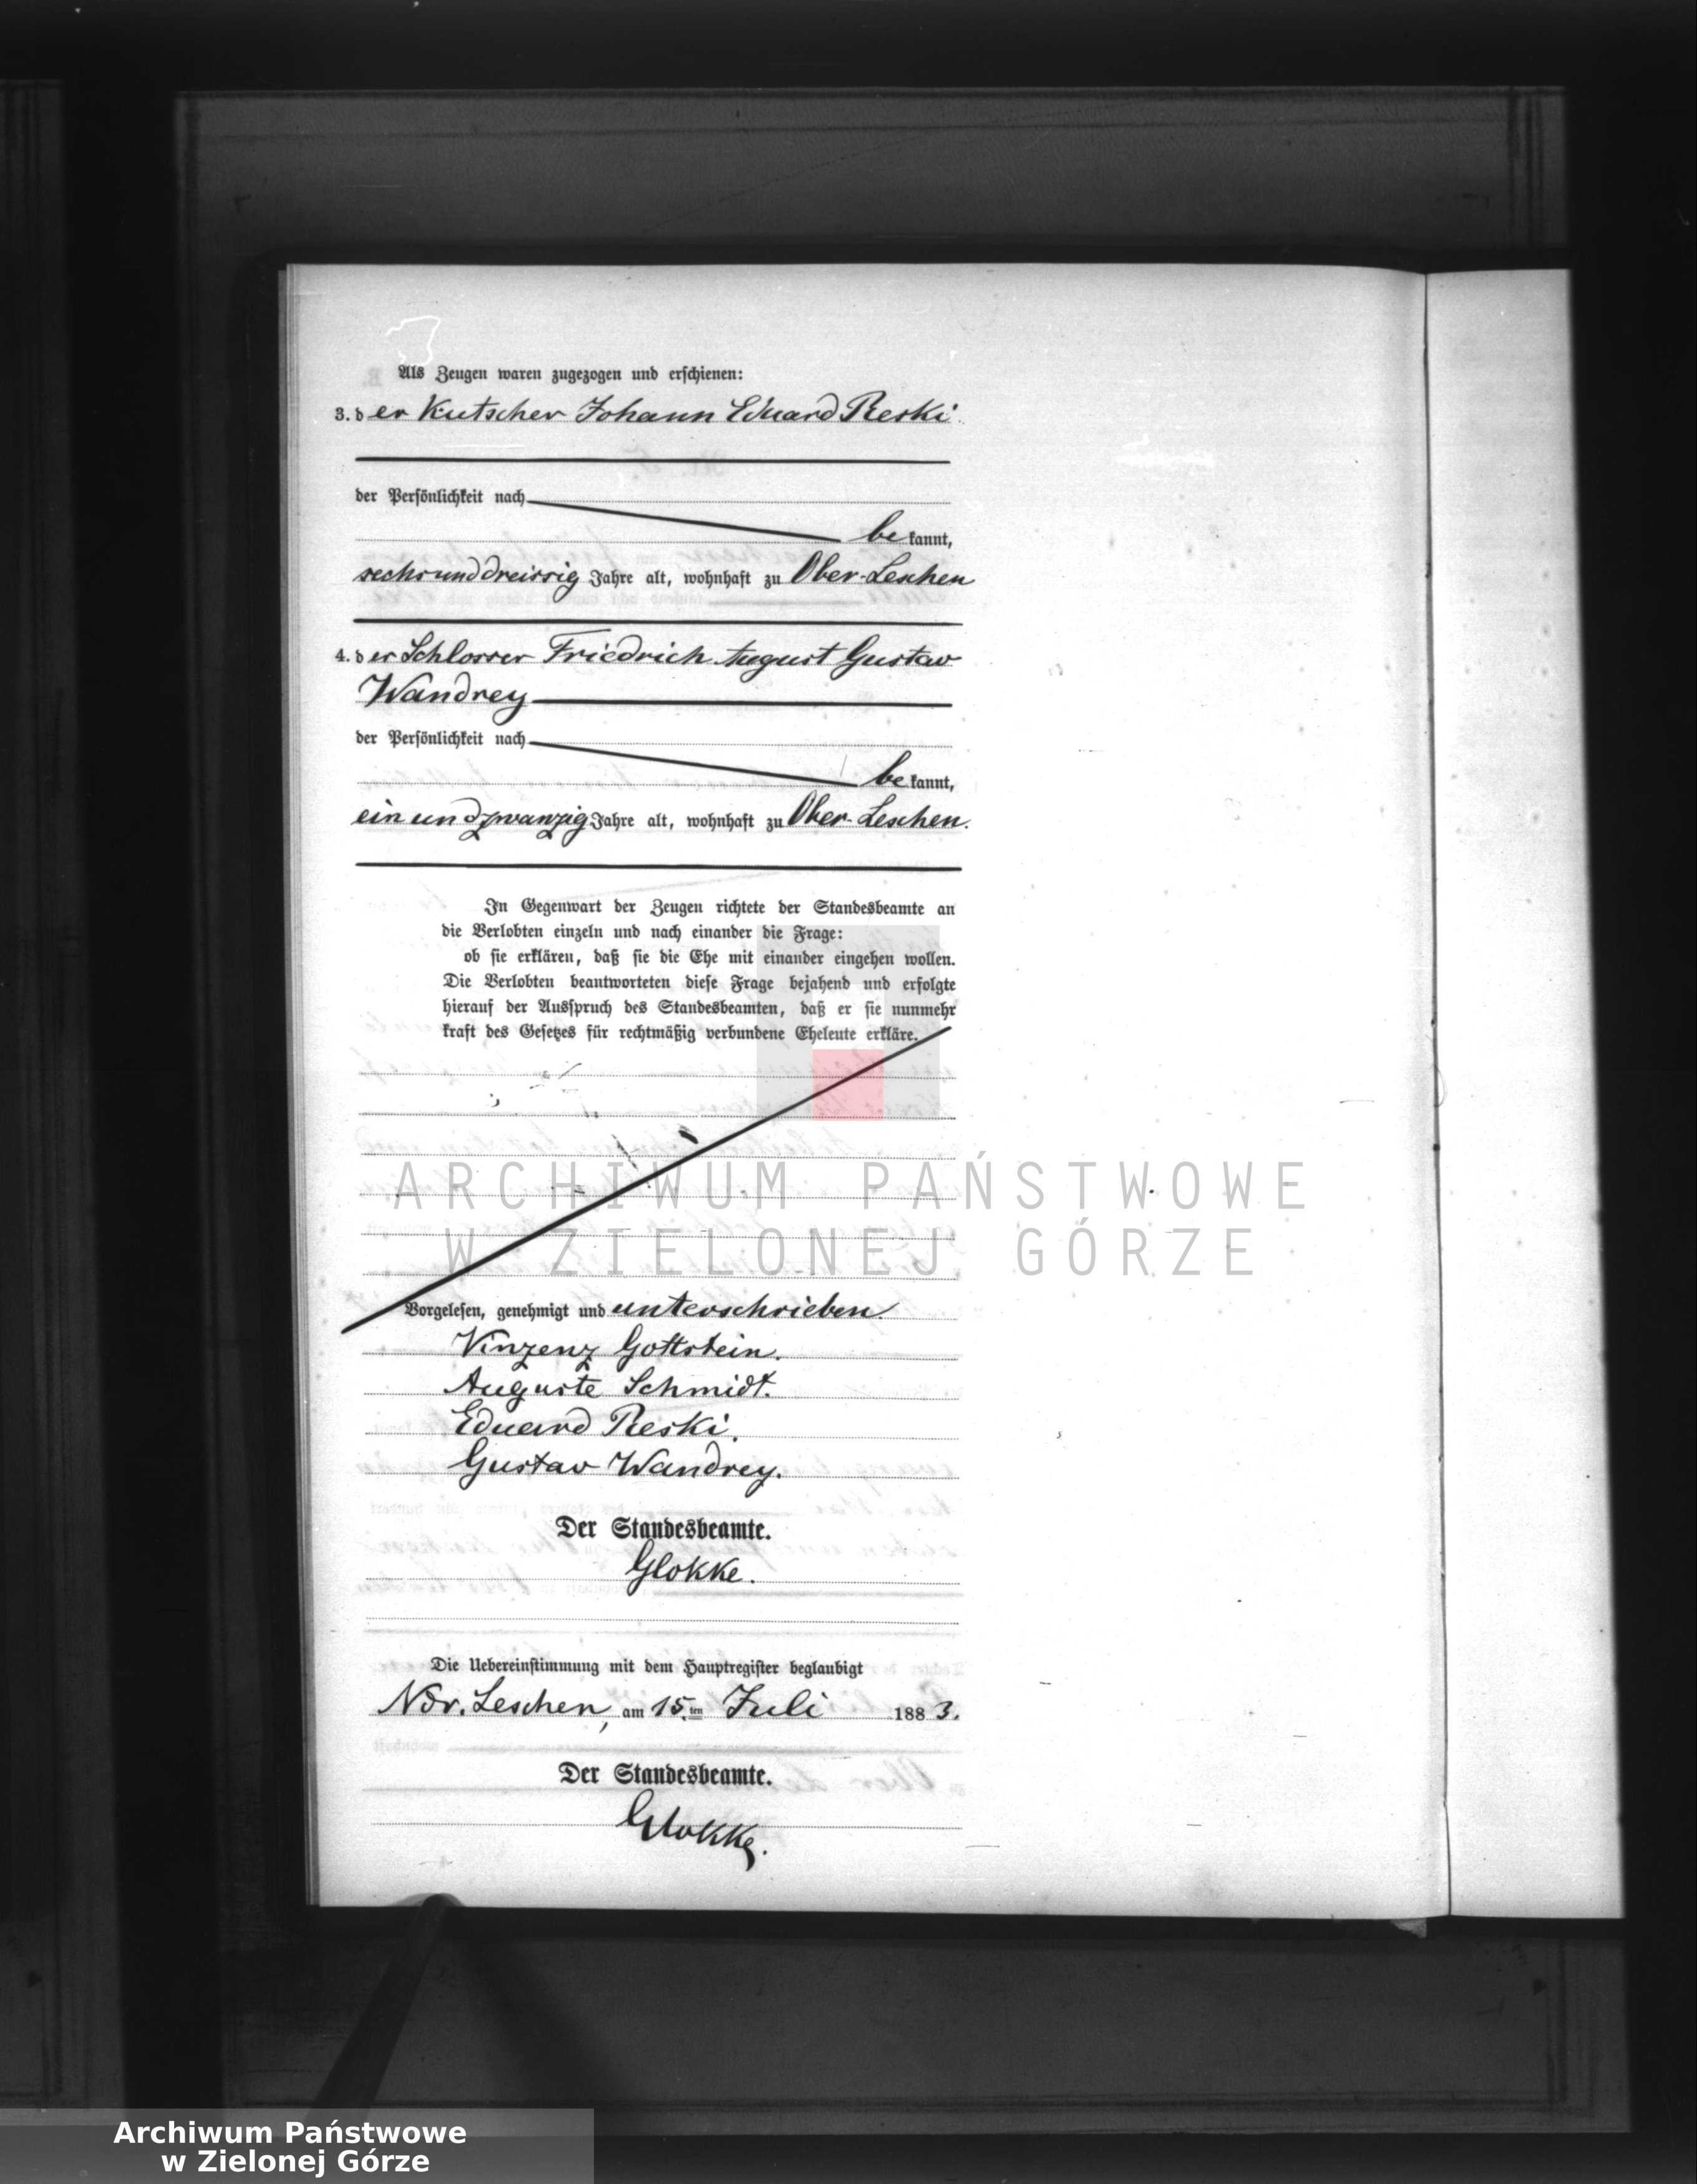 Als Zeugen waren zugezogen und erschienen:
3. der Kutscher Johann Eduard Reski
der Persönlichkeit nach
bekannt,
sechsunddreissig Jahre alt, wohnhaft zu Ober-Leschen
4. der Schlosser Friedrich August Gustav
Wandrey
der Persönlichkeit nach
bekannt,
einundzwanzig Jahre alt, wohnhaft zu Ober-Leschen.
In Gegenwart der Zeugen richtete der Standesbeamte an
die Verlobten einzeln und nach einander die Frage:
ob sie erklären, daß sie die Ehe mit einander eingehen wollen.
Die Verlobten beantworteten diese Frage bejahend und erfolgte
hierauf der Ausspruch des Standesbeamten, daß er sie nunmehr
kraft des Gesetzes für rechtmäßig verbundene Eheleute erkläre.
ARCHIWUM PAŃSTWOWE
W ZIELONEJ GÓRZE
Vorgelesen, genehmigt und unterschrieben.
Vinzenz Gottstein.
Auguste Schmidt.
Eduard Reski.
Gustav Wandrey.
Der Standesbeamte.
Glokke.
Die Uebereinstimmung mit dem Hauptregister beglaubigt
Ndr. Leschen, am 15.ten Juli 1883.
Der Standesbeamte.
Glokke.
Archiwum Państwowe
w Zielonej Górze